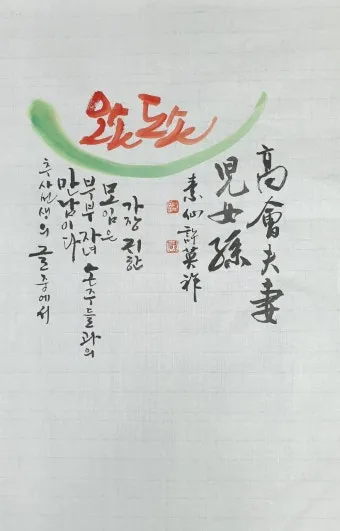 오손도손
高會夫妻
兒女孫
素仙許英祚
가장 귀한
모임은
부부 자녀 손주들과의
만남이다
추사선생의 글 중에서